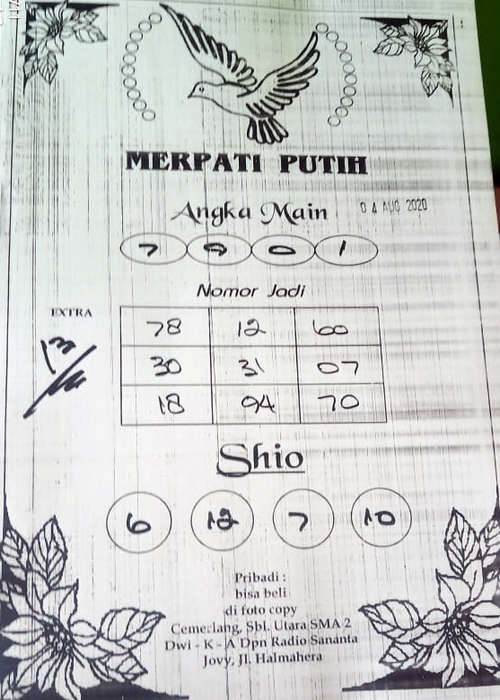 MERPATI PUTIH
Angka Main
04 AUG 2020
7 9 0 1
Nomor Jadi
EXTRA
13
78 12 60
30 31 07
18 94 70
Shio
6 12 7 10
Pribadi :
bisa beli
di foto copy
Cemerlang, Sbl. Utara SMA 2
Dwi - K - A Dpn Radio Sananta
Jovy, Jl. Halmahera